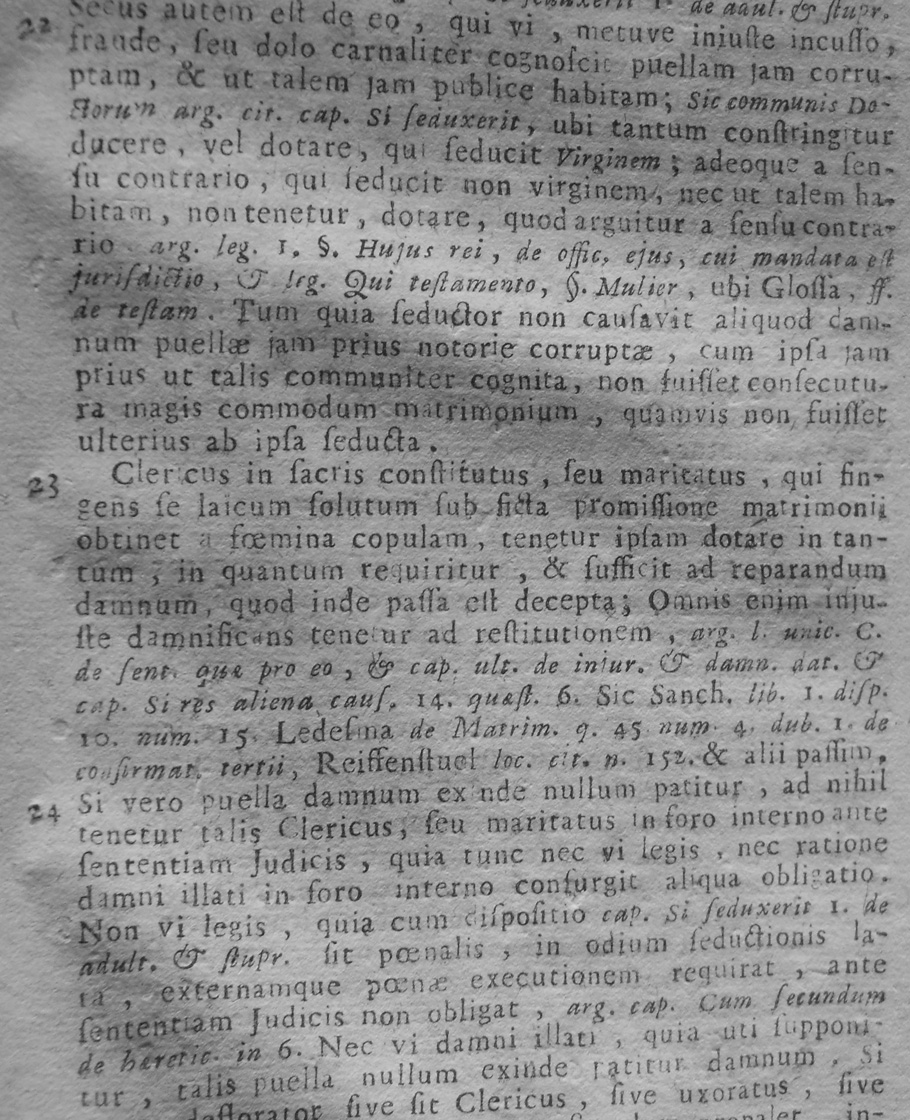 de adul. & ſtupr.
22 Secus autem eſt de eo, qui vi, metuve iniuſte incuſſo,
fraude, ſeu dolo carnaliter cognoſcit puellam jam corru-
ptam, & ut talem jam publice habitam; Sic communis Do-
ctorum arg. cit. cap. Si ſeduxerit, ubi tantum conſtringitur
ducere, vel dotare, qui ſeducit Virginem; adeoque a ſen-
ſu contrario, qui ſeducit non virginem, nec ut talem ha-
bitam, non tenetur, dotare, quod arguitur a ſenſu contra-
rio arg. leg. 1. §. Hujus rei, de offic. ejus, cui mandata eſt
juriſdictio, & leg. Qui teſtamento, §. Mulier, ubi Gloſſa, ff.
de teſtam. Tum quia ſeductor non cauſavit aliquod dam-
num puellæ jam prius notorie corruptæ, cum ipſa jam
prius ut talis communiter cognita, non fuiſſet conſecutu-
ra magis commodum matrimonium, quamvis non fuiſſet
ulterius ab ipſa ſeducta.
23 Clericus in ſacris conſtitutus, ſeu maritatus, qui fin-
gens ſe laicum ſolutum ſub ficta promiſſione matrimonii
obtinet a fœmina copulam, tenetur ipſam dotare in tan-
tum, in quantum requiritur, & ſufficit ad reparandum
damnum, quod inde paſſa eſt decepta; Omnis enim inju-
ſte damnificans tenetur ad reſtitutionem, arg. l. unic. C.
de ſent. quæ pro eo, & cap. ult. de iniur. & damn. dat. &
cap. Si res aliena cauſ. 14. quæſt. 6. Sic Sanch. lib. 1. diſp.
10. num. 15. Ledeſma de Matrim. q. 45 num. 4. dub. 1. de
confirmat. tertii, Reiffenſtuel loc. cit. n. 152. & alii paſſim,
24 Si vero puella damnum exinde nullum patitur, ad nihil
tenetur talis Clericus, ſeu maritatus in foro interno ante
ſententiam Judicis, quia tunc nec vi legis, nec ratione
damni illati in foro interno conſurgit aliqua obligatio.
Non vi legis, quia cum diſpoſitio cap. Si ſeduxerit 1. de
adult. & ſtupr. ſit pœnalis, in odium ſeductionis la-
ta, externamque pœnæ executionem requirat, ante
ſententiam Judicis non obligat, arg. cap. Cum ſecundum
de hæretic. in 6. Nec vi damni illati, quia uti ſupponi-
tur, talis puella nullum exinde patitur damnum. Si
deflorator ſive ſit Clericus, ſive uxoratus, ſive
in-